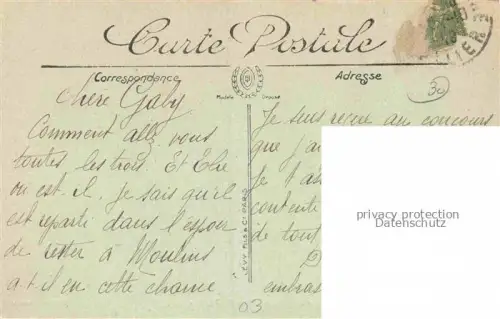 Carte Postale
Correspondance
Adresse
Modèle Déposé
30
chère Gaby
Comment allez vous
toutes les trois. Et Elie
ou est-il, je sais qu'il
est reparti dans l'espoir
de rester à Moulins
a-t-il eu cette chance
Je suis reçue au concours
que j'ai
Je t'as
contente
de tout
embras
LEVY FILS & CIE PARIS
privacy protection
Datenschutz
03